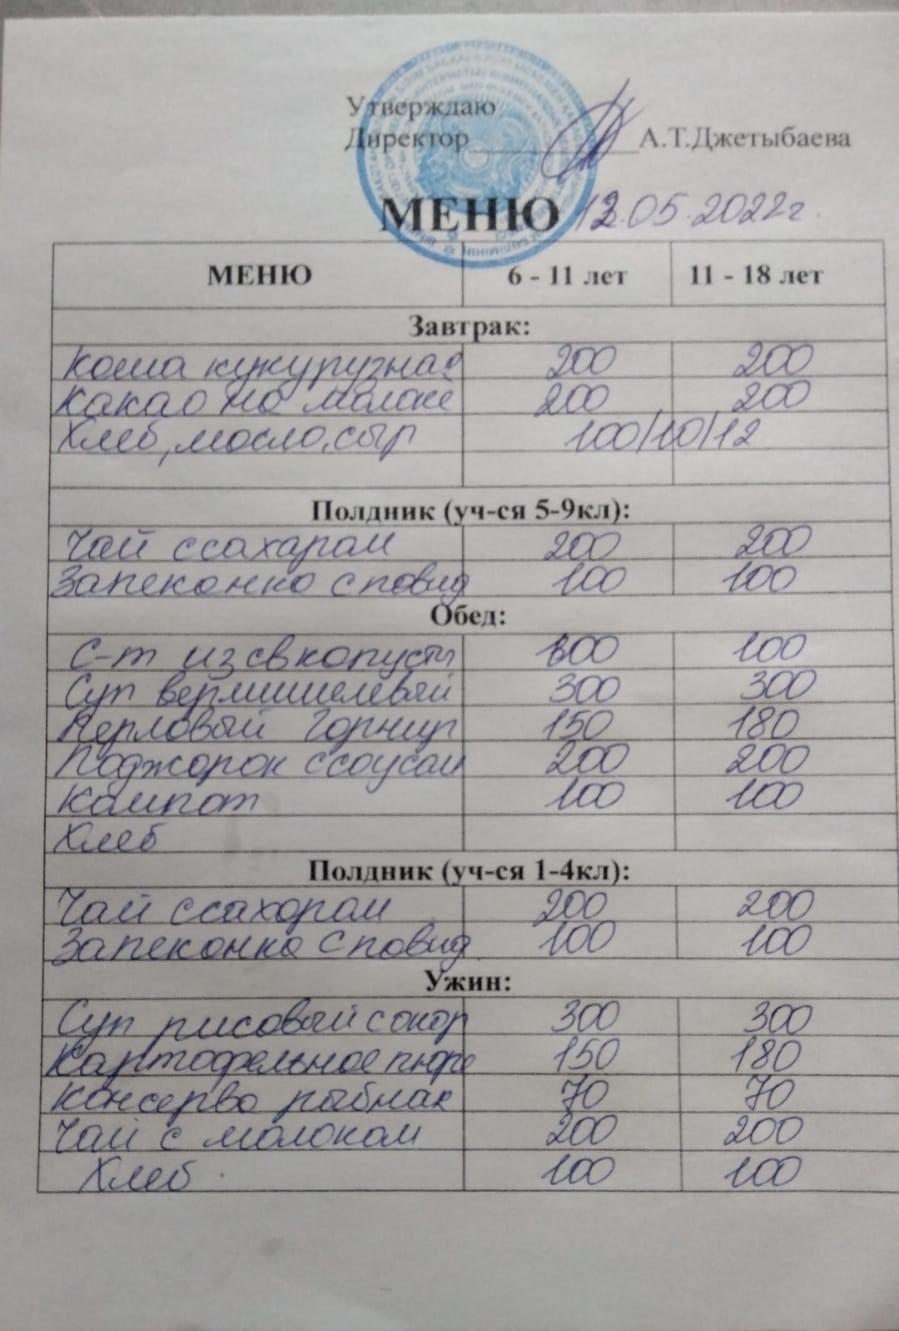 Утверждаю
Директор А.Т.Джетыбаева
МЕНЮ 12.05.2022г.
МЕНЮ 6 - 11 лет 11 - 18 лет
Завтрак:
Каша кукурузная 200 200
Какао на молоке 200 200
Хлеб, масло, сыр 100/10/12
Полдник (уч-ся 5-9кл):
Чай ссахаром 200 200
Запеканка с повид 100 100
Обед:
С-т из св капусты 100 100
Суп вермишелевый 300 300
Перловый Горнир 150 180
Поджарок ссоусом 200 200
Компот 100 100
Хлеб
Полдник (уч-ся 1-4кл):
Чай ссахаром 200 200
Запеканка с повид 100 100
Ужин:
Суп рисовый с окор 300 300
Картофельное пюре 150 180
Консерва рыбная 70 70
Чай с молоком 200 200
Хлеб 100 100